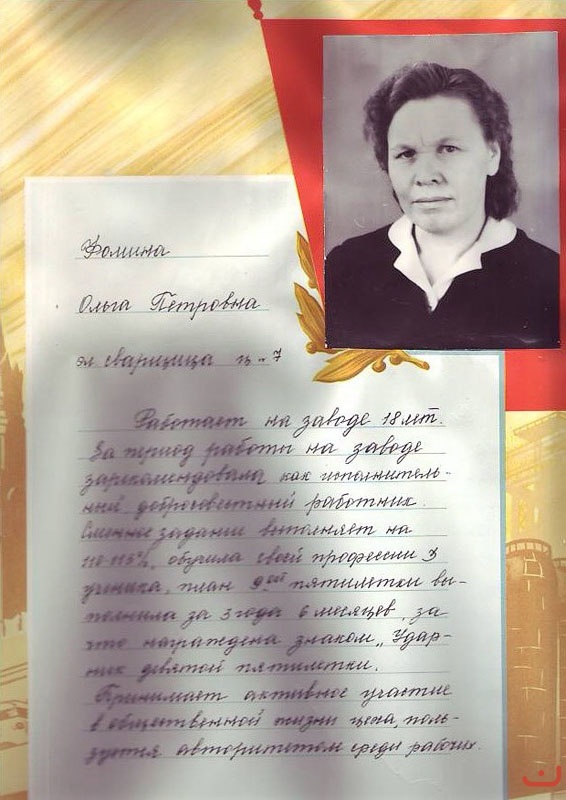 Фомина
Ольга Петровна
эл сварщица ц. 7
Работает на заводе 18 лет.
За период работы на заводе
зарекомендовала как исполнитель-
ный, добросовестный работник.
Сменное задание выполняет на
110-115%, обучила своей профессии
ученика, план 9ой пятилетки вы-
полнила за 3 года 6 месяцев, за
что награждена знаком „Удар-
ник девятой пятилетки.
Принимает активное участие
в общественной жизни цеха, поль-
зуется авторитетом среди рабочих.